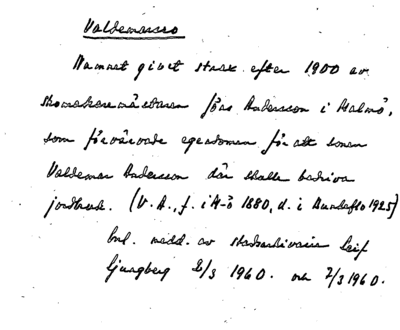 Valdemarsro
Namnet givet strax efter 1900 av
skomakaremästaren Jöns Andersson i Malmö,
som förvärvade egendomen för att sonen
Valdemar Andersson där skulle bedriva
jordbruk. (V. A., f. i M-ö 1880, d. i 1925)
enl. medd. av stadsarkivarie Leif
Ljungberg 2/3 1960. och 7/3 1960.